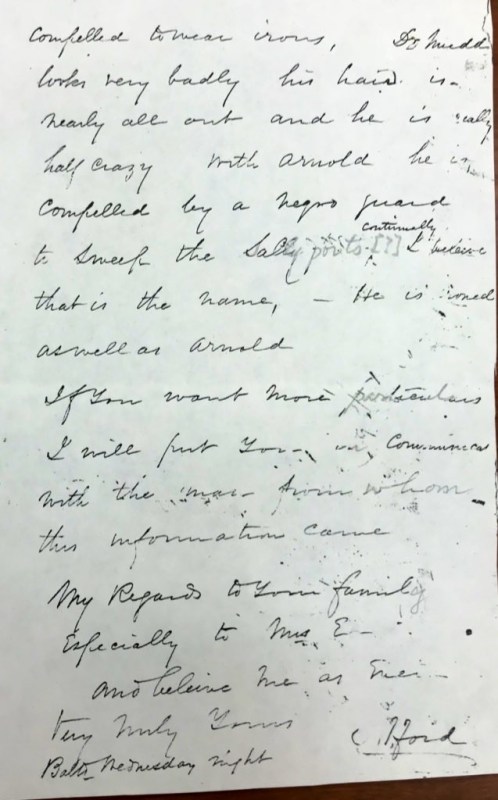 compelled to wear irons, Dr Mudd
looks very badly his hair is
nearly all out and he is really
half crazy with Arnold he is
compelled by a negro guard
continually
to sweep the Sally ports [?] I believe
that is the name, — He is ironed
as well as Arnold
If You want More particulars
I will put You in Communicat
with the man from whom
this information came
My Regards to Your family
Especially to Mrs E—
and beleive Me as Ever—
Very truly Yours
Ford
Balto Wednesday night